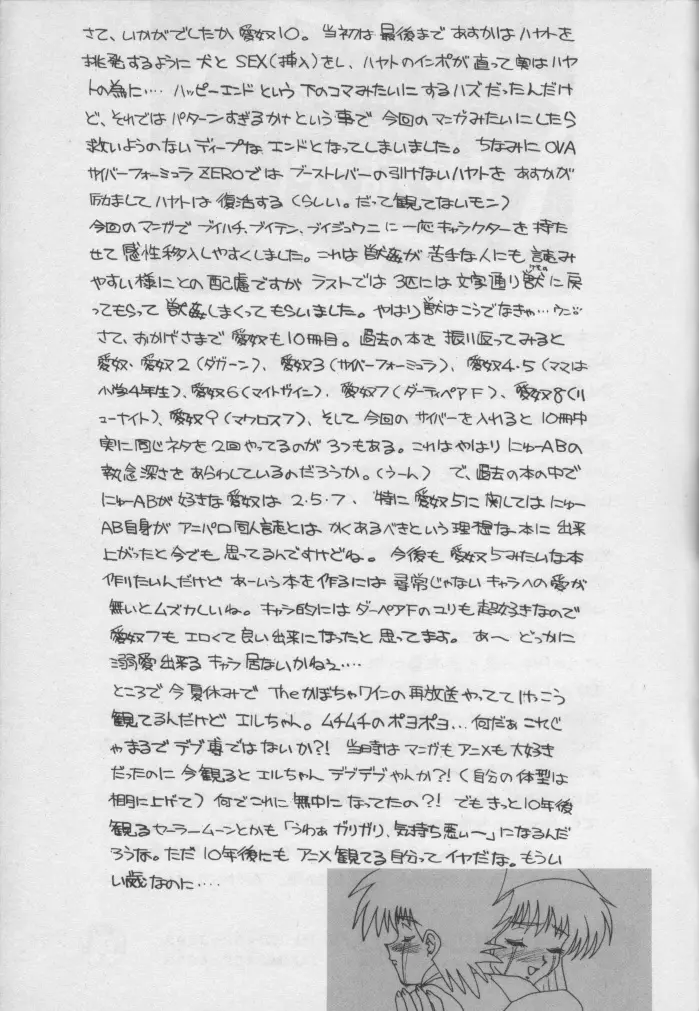 さて、いかがでしたか愛奴10。当初は最後まであすかはハヤトを
挑発するように犬とSEX(挿入)をし、ハヤトのインポが直って実はハヤ
トの為に‥‥ハッピーエンドという下のコマみたいにするハズだったんだけ
ど、それではパターンすぎるかナという事で今回のマンガみたいにしたら
救いようのないディープなエンドとなってしまいました。ちなみにOVA
サイバーフォーミュラZEROではブーストレバーの引けないハヤトをあすかが
励ましてハヤトは復活する(らしい。だって観てないモン)
今回のマンガでブイハチ、ブイテン、ブイジュウニに一応キャラクターを持た
せて感性移入しやすくしました。これは獣姦が苦手な人にも読み
やすい様にとの配慮ですがラストでは3匹には文字通り獣に戻
ってもらって獣姦しまくってもらいました。やはり獣はこうでなきゃ…
さて、おかげさまで愛奴も10冊目。過去の本を振り返ってみると
愛奴・愛奴2(ダガーン)、愛奴3(サイバーフォーミュラ)、愛奴4・5(ママは
小学4年生)、愛奴6(マイトガイン)、愛奴7(ダーティペアF)、愛奴8(リ
ューナイト)、愛奴9(マクロス7)、そして今回のサイバーを入れると10冊中
実に同じネタを2回やってるのが3つもある。これはやはりにゅーABの
執念深さをあらわしているのだろうか。(うーん)で、過去の本の中で
にゅーABが好きな愛奴は2・5・7、特に愛奴5に関してはにゅー
AB自身がアニパロ同人誌とはかくあるべきという理想な本に出来
上がったと今でも思ってるんですけどね。今後も愛奴5みたいな本
作りたいんだけどあーいう本を作るには尋常じゃないキャラへの愛が
無いとムズカしいね。キャラ的にはダーペアFのユリも超好きなので
愛奴7もエロくて良い出来になったと思ってます。あ〜どっかに
溺愛出来るキャラ居ないかねぇ‥‥
ところで今夏休みでTheかぼちゃワインの再放送やっててけっこう
観てるんだけどエルちゃん。ムチムチのポヨポヨ…何だぁこれじ
ゃまるでデブ専ではないか?!当時はマンガもアニメも大好き
だったのに今観るとエルちゃんデブデブやんか?!(自分の体型は
棚に上げて)何でこれに無中になってたの?!でもきっと10年後
観るセーラームーンとかも「うわぁガリガリ、気持ち悪ぃ〜」になるんだ
ろうな。ただ10年後にもアニメ観てる自分ってイヤだな。もういい
い歳なのに‥‥